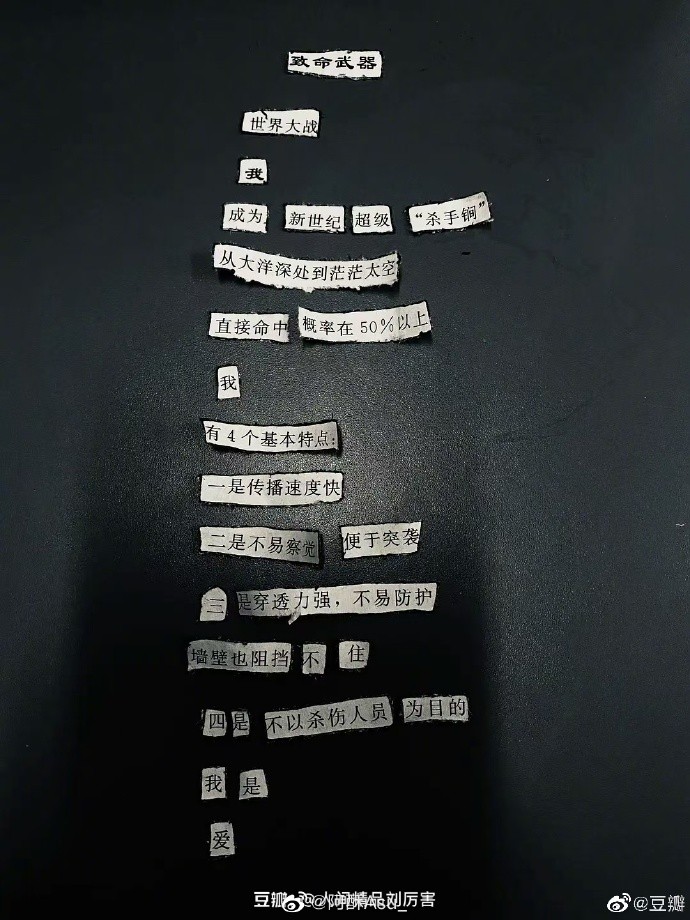 致命武器
世界大战
我
成为 新世纪 超级 “杀手锏”
从大洋深处到茫茫太空
直接命中 概率在50%以上
我
有4个基本特点：
一是传播速度快
二是不易察觉 便于突袭
三是穿透力强，不易防护
墙壁也阻挡不住
四是不以杀伤人员为目的
我是
爱
豆瓣 @人间精品刘厉害
@豆瓣